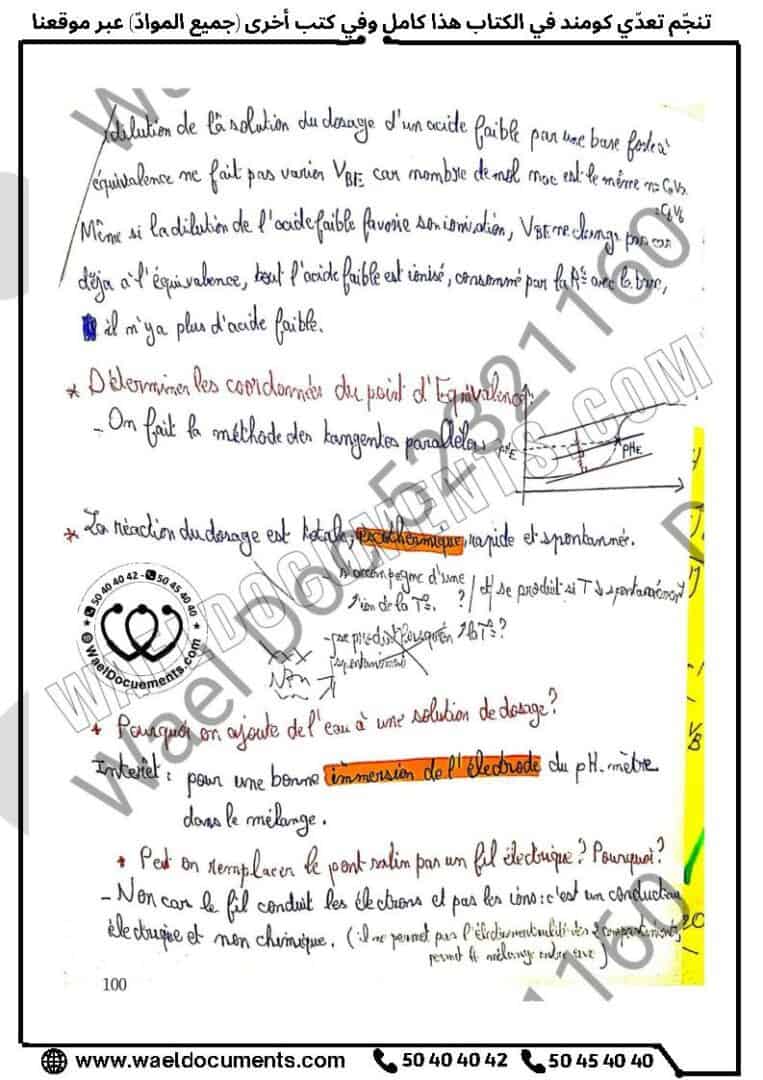 تنجّم تعدّي كومند في الكتاب هذا كامل وفي كتب أخرى (جميع الموادّ) عبر موقعنا
dilution de la solution du dosage d'un acide faible par une base forte à
équivalence ne fait pas varier VBE car nombre de mol mac est le même n=CaVa
=CbVb
Même si la dilution de l'acide faible favorie son ionisation, VBE ne change pas car
déja à l'équivalence, tout l'acide faible est ionisé, consommé par la R° avec la base,
il n'ya plus d'acide faible.
* Déterminer les coordonnées du point d'Equivalence
- On fait la méthode des tangentes parallèles
pHE
pHE
* La réaction du dosage est totale, exothermique, rapide et spontannée.
s'accompagne d'une
de la T°. ? / et se produit si T spontanément
T°?
Non
VB
* Pourquoi on ajoute de l'eau à une solution de dosage?
Interêt : pour une bonne immersion de l'électrode du pH-mètre
dans le mélange.
* Peut on remplacer le pont salin par un fil électrique? Pourquoi?
- Non car le fil conduit les électrons et pas les ions : c'est un conduction
électrique et non chimique. (il ne permet pas l'électroneutralité des 2 compartiments
permet le mélange entre eux)
20
100
Wael Doc 52321160
WAELDOCUMENTS.COM
50 40 40 42 - 50 45 40 40
WaelDocuements.com
www.waeldocuments.com 50 40 40 42 50 45 40 40